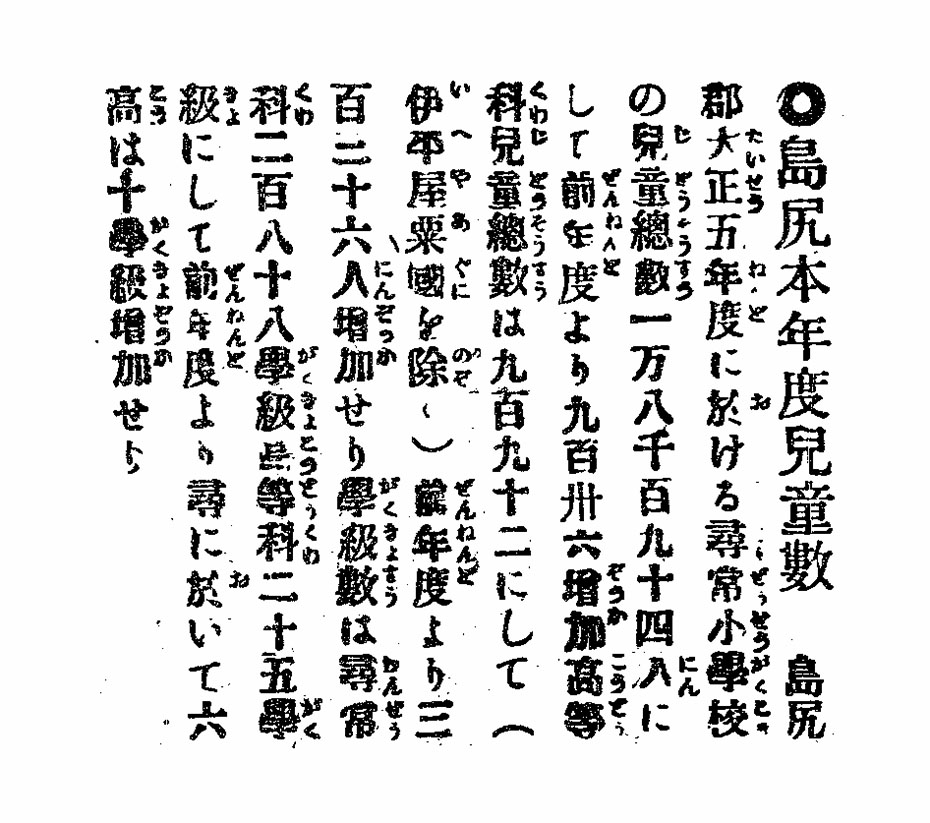 ◎島尻本年度兒童數　島尻
郡大正五年度に於ける尋常小學校
の兒童總數一万八千百九十四人に
して前年度より九百卅六增加高等
科兒童總數は九百九十二にして（
伊平屋粟國を除く）前年度より三
百二十六人增加せり學級數は尋常
科二百八十八學級高等科二十五學
級にして前年度より尋に於いて六
高は十學級增加せり